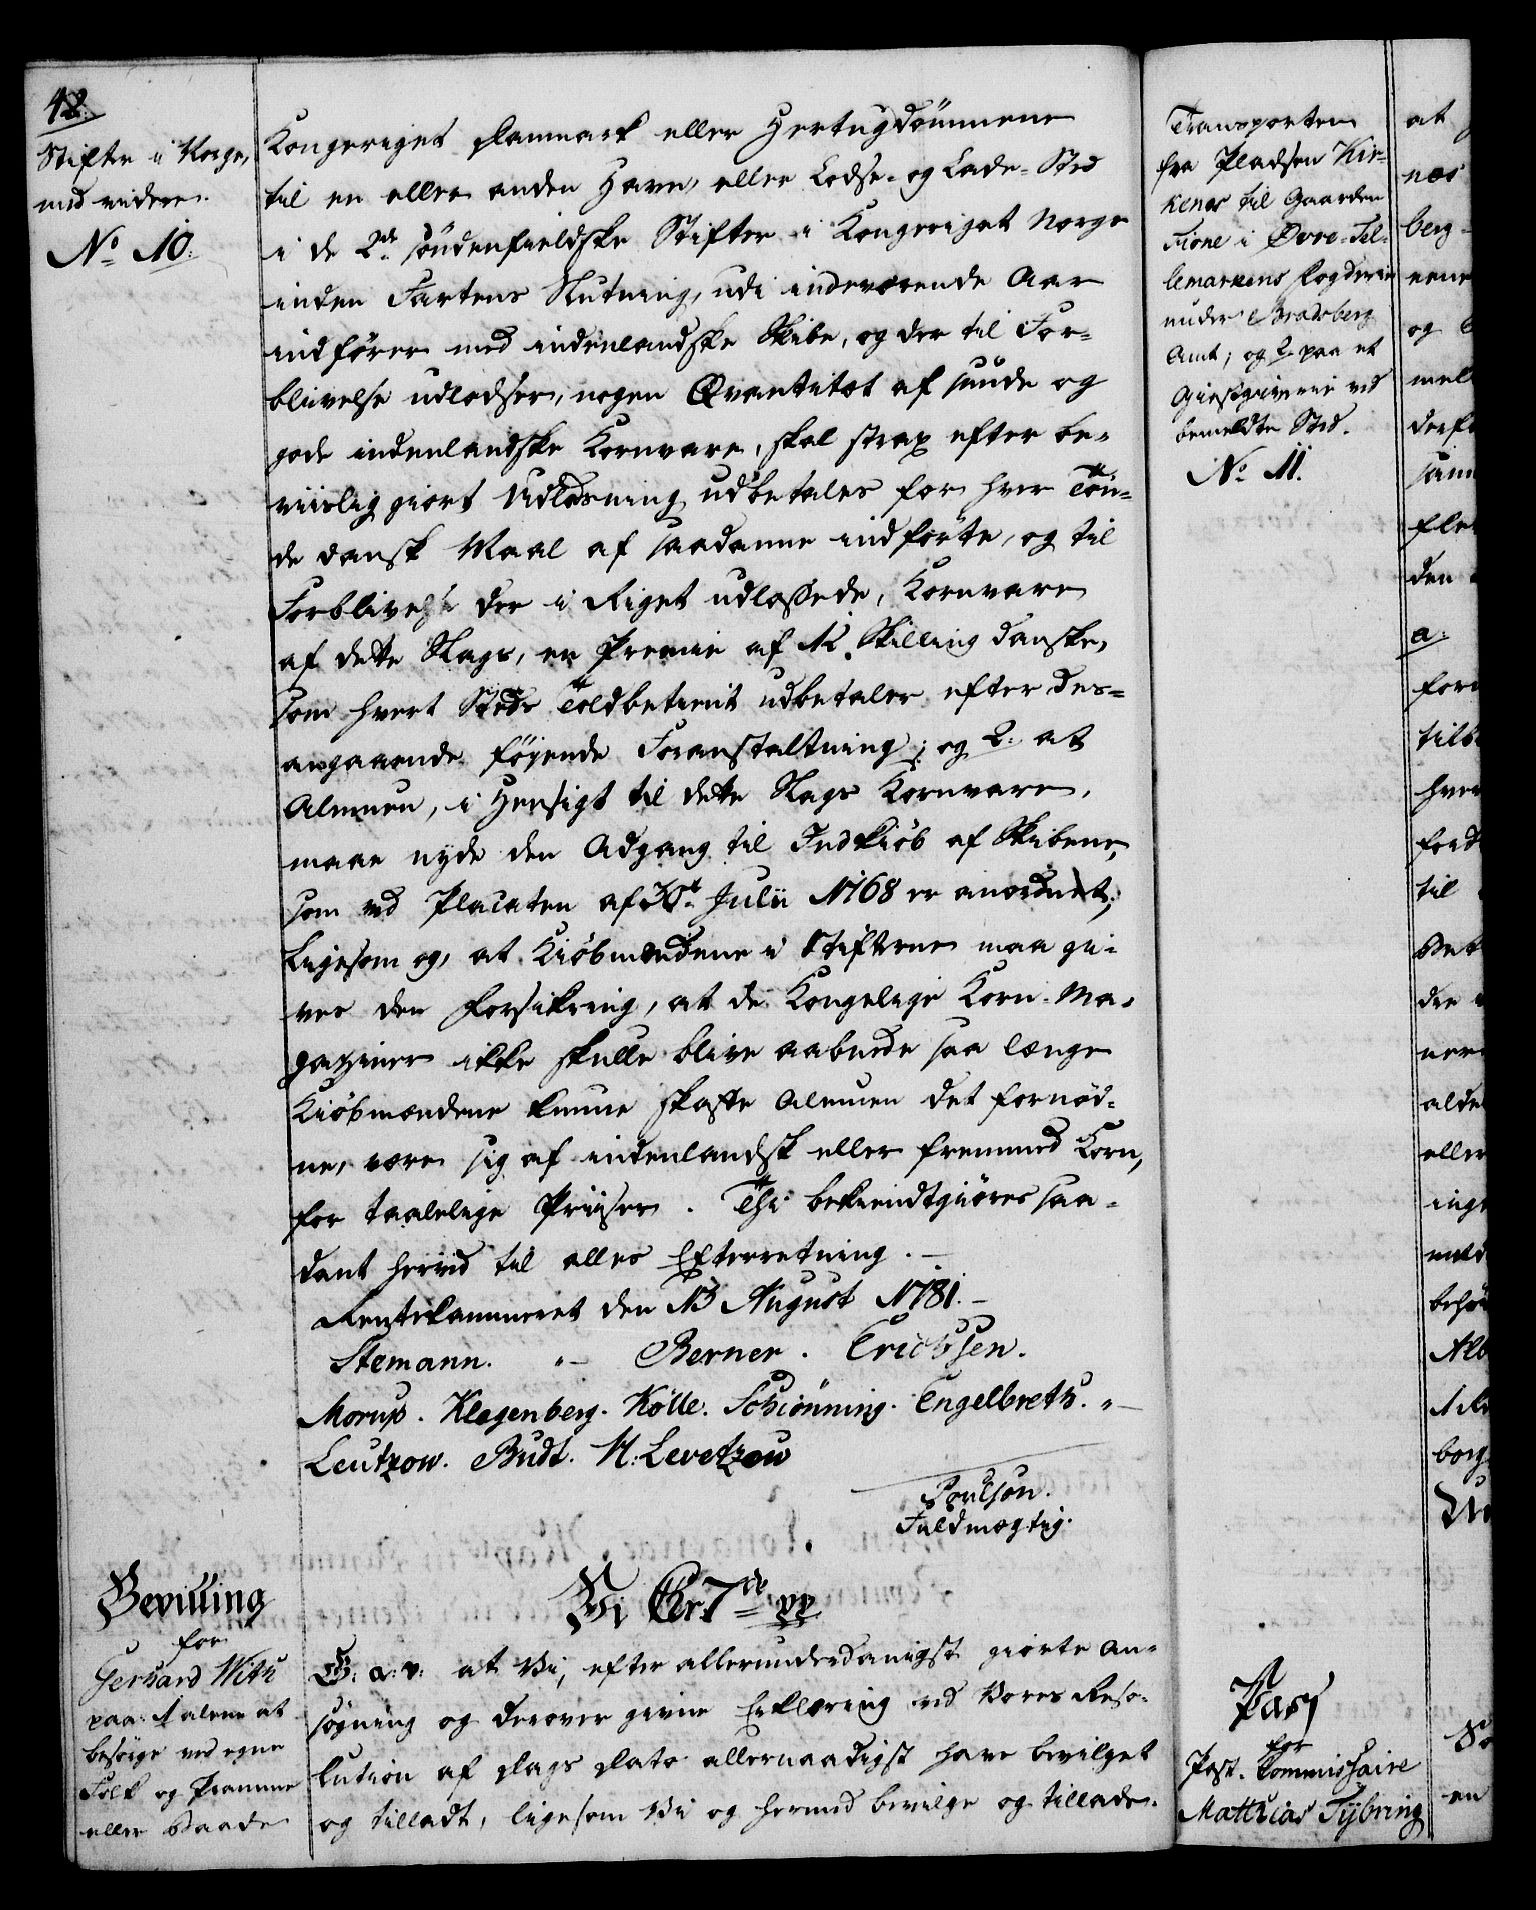 42.
Stifter i Norge,
med videre.
No. 10.
Kongeriget Danmark eller Hertugdömmene
til en eller anden Havn, eller Losse- og Lade-Sted
i de 2de söndenfieldske Stifter i Kongeriget Norge
inden Fartens Slutning, udi indeværende Aar
indfører med indenlandske Skibe, og der til For-
blivelse udlosser, nogen Qvantitet af sunde og
gode indenlandske Kornvare, skal strax efter be-
viislig giort Udlosning udbetales for hver Tön-
de dansk Maal af saadanne indförte, og til
Forblivelse der i Riget udlossede, Kornvare
af dette Slags, en Præmie af 12 Skilling danske,
som hvert Steds Toldbetient udbetaler efter des-
angaaende föyende Foranstaltning; og 2. at
Almuen, i Hensigt til dette Slags Kornvare,
maae nyde den Adgang til Indkiöb af Skibene,
som ved Placaten af 30te Julii 1768 er anordnet;
Ligesom og, at Kiöbmændene i Stifterne maa gi-
ves den Forsikring, at de Kongelige Korn-Ma-
gaziner ikke skulle blive aabnede saa længe
Kiöbmændene kunne skaffe Almuen det fornöd-
ne, være sig af indenlandsk eller fremmed Korn,
for taalelige Priiser. Thi bekiendtgiöres saa-
dant herved til alles Efterretning. –
Rentekammeret den 13 August 1781. –
Stemann. „ – Berner. Erichsen.
Morup. Klagenberg. Kölle. Schiönning. Engelbreth. „ –
Leutzow. Budt. H: Levetzow
Poulson.
Fuldmægtig.
Bevilling
for
Gerhard With
paa: 1 alene at
besörge ved egne
Folk og Pramme
eller Baade
Vi Chr 7de pp
G: a: v: at Vi, efter allerunderdanigst giorte An-
sögning og derover givne Erklæring ved Vores Reso-
lution af Dags Dato allernaadigst have bevilget
og tilladt, ligesom Vi og hermed bevilge og tillade.
Transporten
fra Pladsen Kir-
kenes til Gaarden
Fione i Övre-Tel-
lemarkens Fogderie
under Bradsberg
Amt; og 2 paa et
Giestgiverie ved
bemeldte Sted.
No. 11.
Pass
for
Post-Kommissaire
Matthias Tybring
at
nes
berg-
og
den
a:
til
alde
eller
borg
en